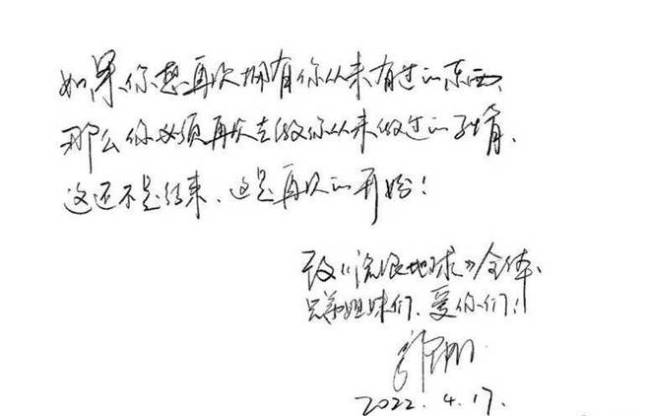 如果你想再次拥有你从来有过的东西、
那么你必须再次去做你从来做过的事情、
这还不是结束、这是再次的开始！
致《流浪地球》全体、
兄弟姐妹们、爱你们！
2022.4.17.